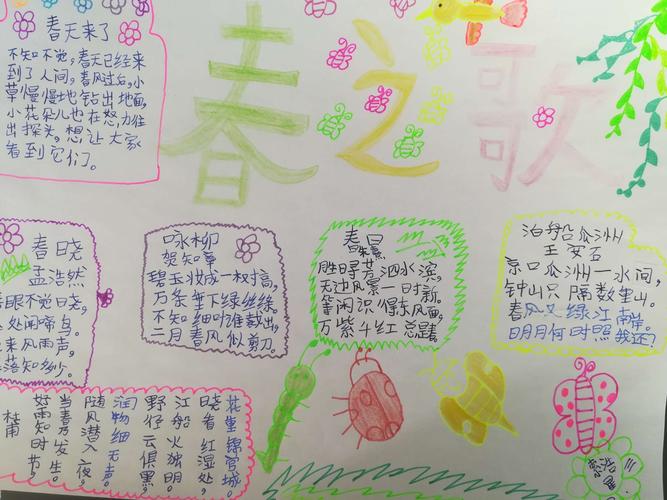 春之歌
春天来了
不知不觉,春天已经来
到了人间,春风过后,小
草慢慢地钻出地面,
小花朵儿也在努力往
出探头,想让大家
看到它们。
春晓
孟浩然
眠不觉晓,
处闻啼鸟。
来风雨声,
落知多少。
咏柳
贺知章
碧玉妆成一树高,
万条垂下绿丝绦。
不知细叶谁裁出,
二月春风似剪刀。
春日
朱熹
胜日寻芳泗水滨,
无边风景一时新。
等闲识得东风面,
万紫千红总是春。
泊船瓜洲
王安石
京口瓜洲一水间,
钟山只隔数重山。
春风又绿江南岸。
明月何时照我还?
杜甫
好雨知时节,
当春乃发生。
随风潜入夜,
润物细无声。
野径云俱黑,
江船火独明。
晓看红湿处,
花重锦官城。